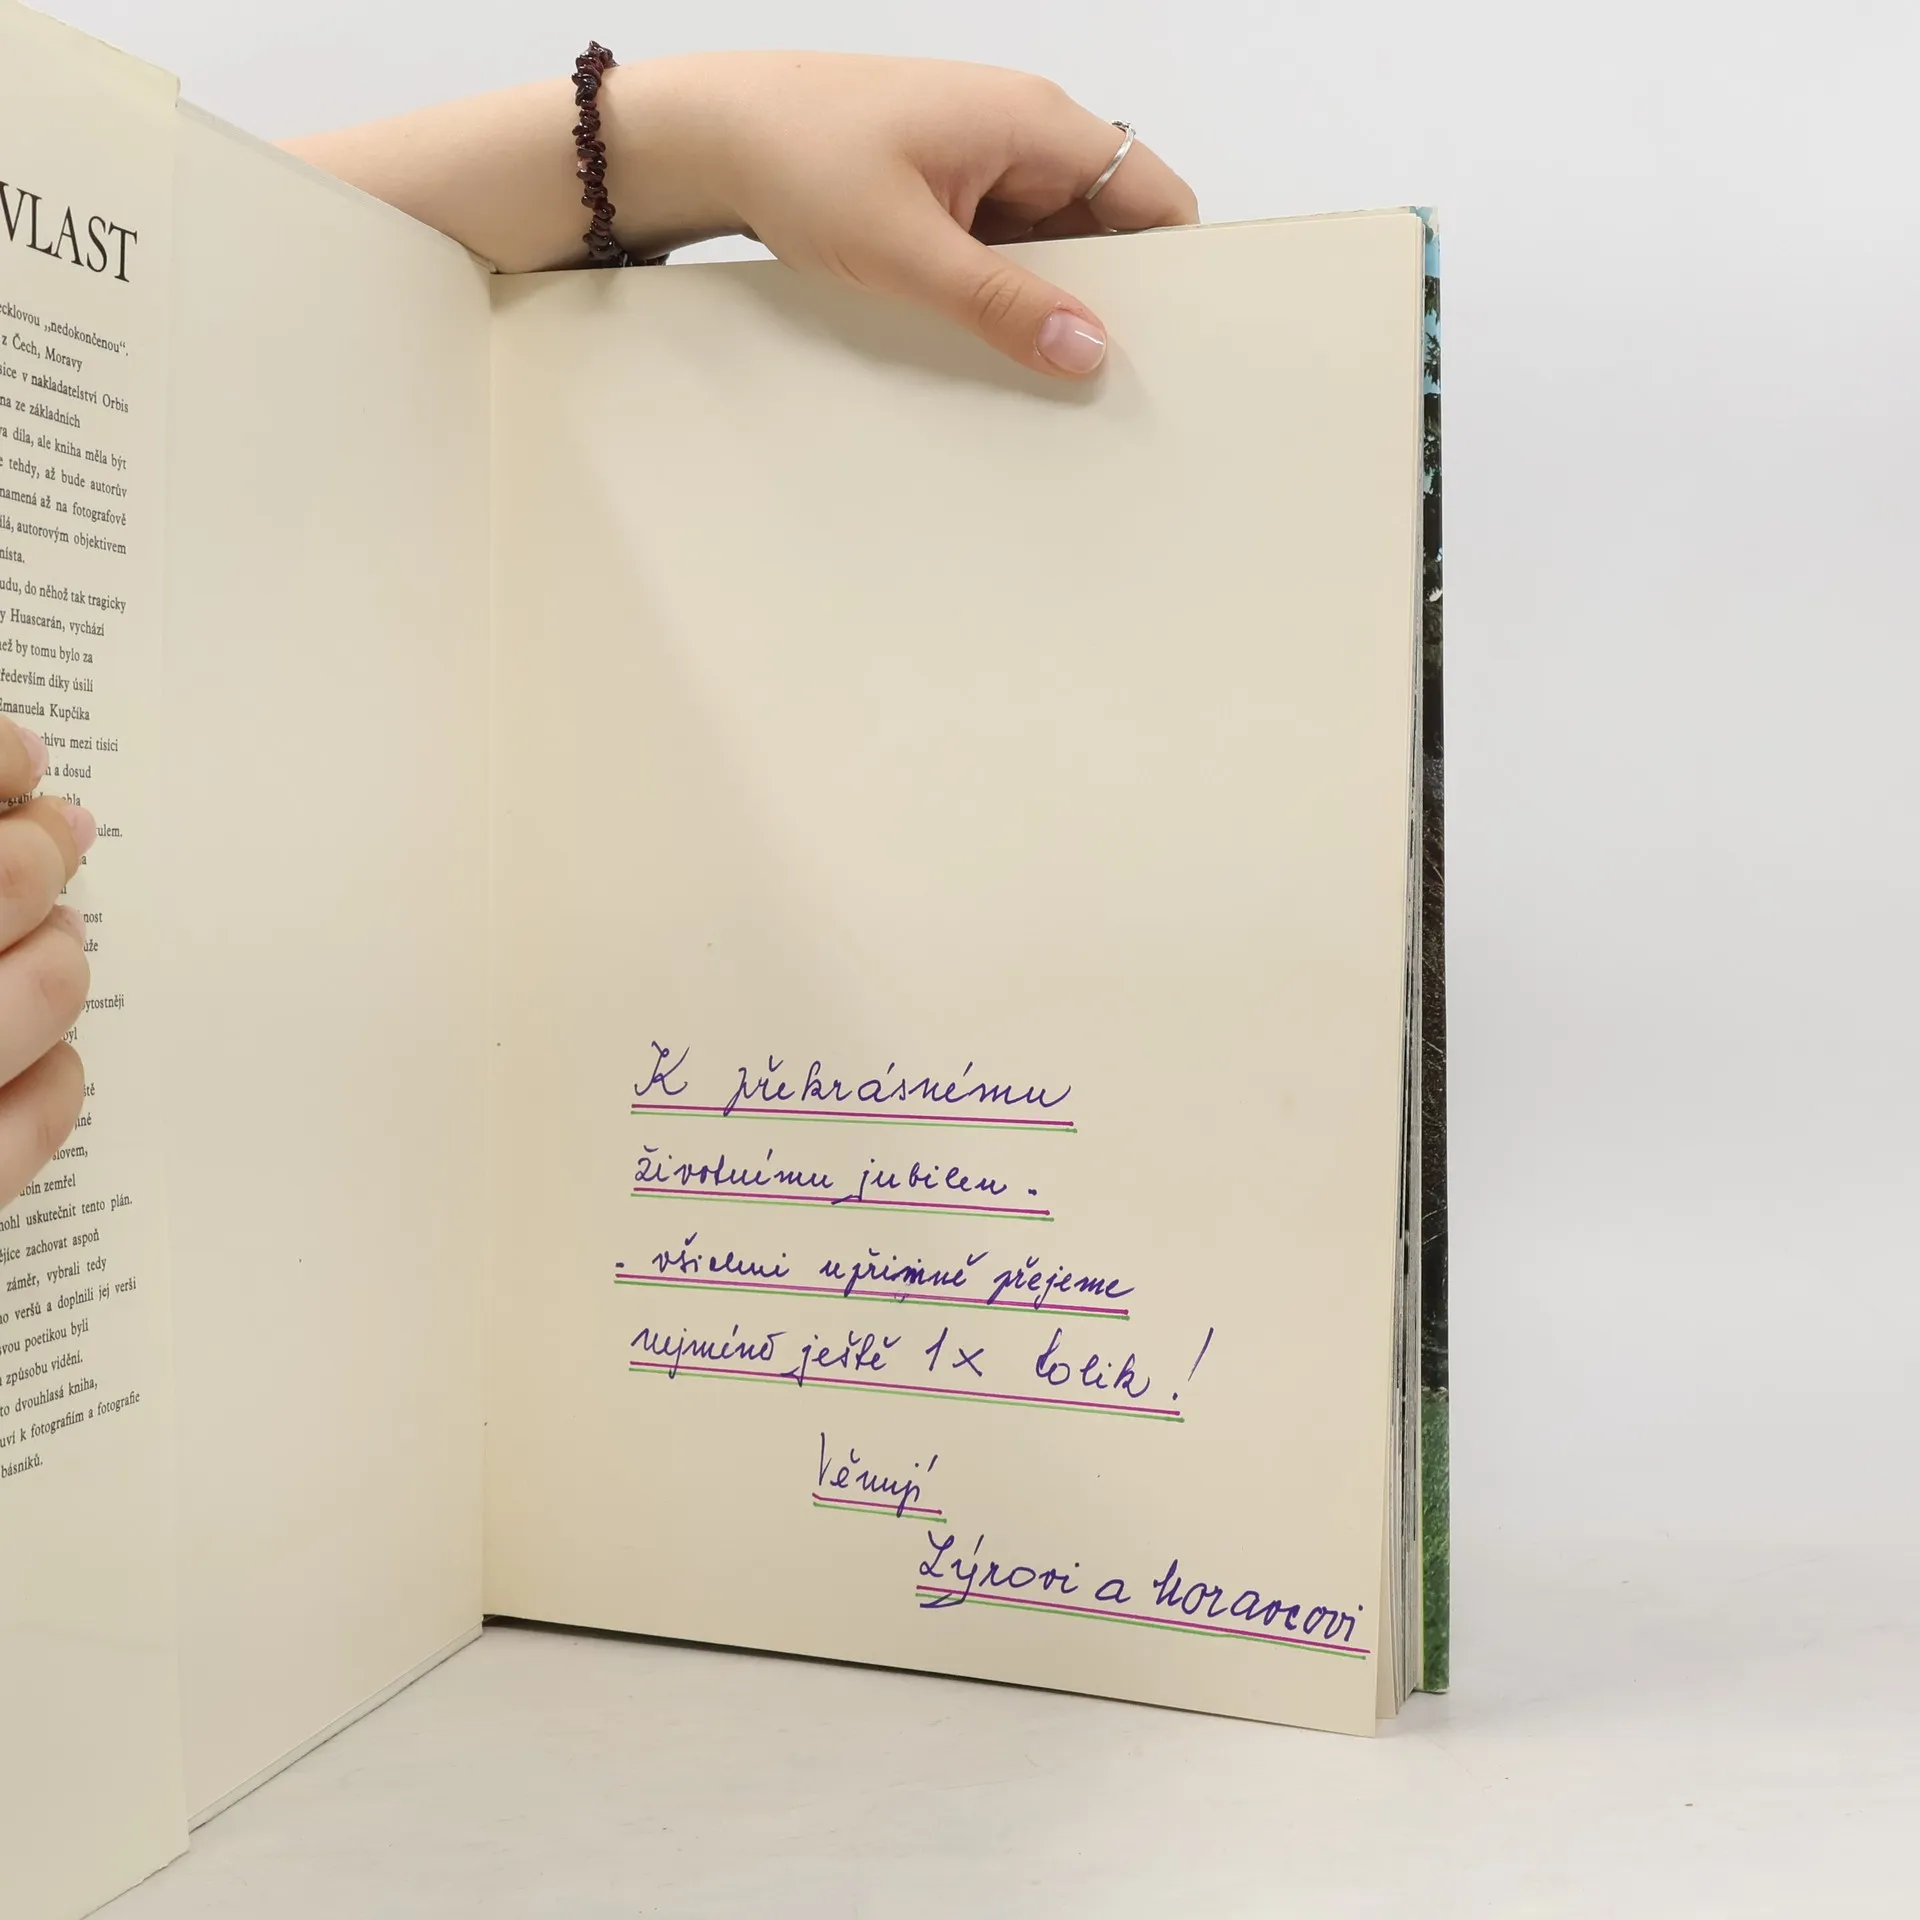 VLAST
„nedokončenou“.
z Čech, Moravy
v nakladatelství Orbis
na ze základních
díla, ale kniha měla být
tehdy, až bude autorův
až na fotografově
autorovým objektivem
místa.
do něhož tak tragicky
Huascarán, vychází
by tomu bylo za
především díky úsilí
Emanuela Kupčíka
mezi tisíci
a dosud
zemřel
uskutečnit tento plán.
zachovat aspoň
záměr, vybrali tedy
veršů a doplnili jej verši
svou poetikou byli
způsobu vidění.
to dvouhlasá kniha,
k fotografiím a fotografie
básníků.
K překrásnému
životnímu jubileu -
- všichni upřimně přejeme
nejméně ještě 1x tolik!
Věrnější
Lýrovi a Moravcovi